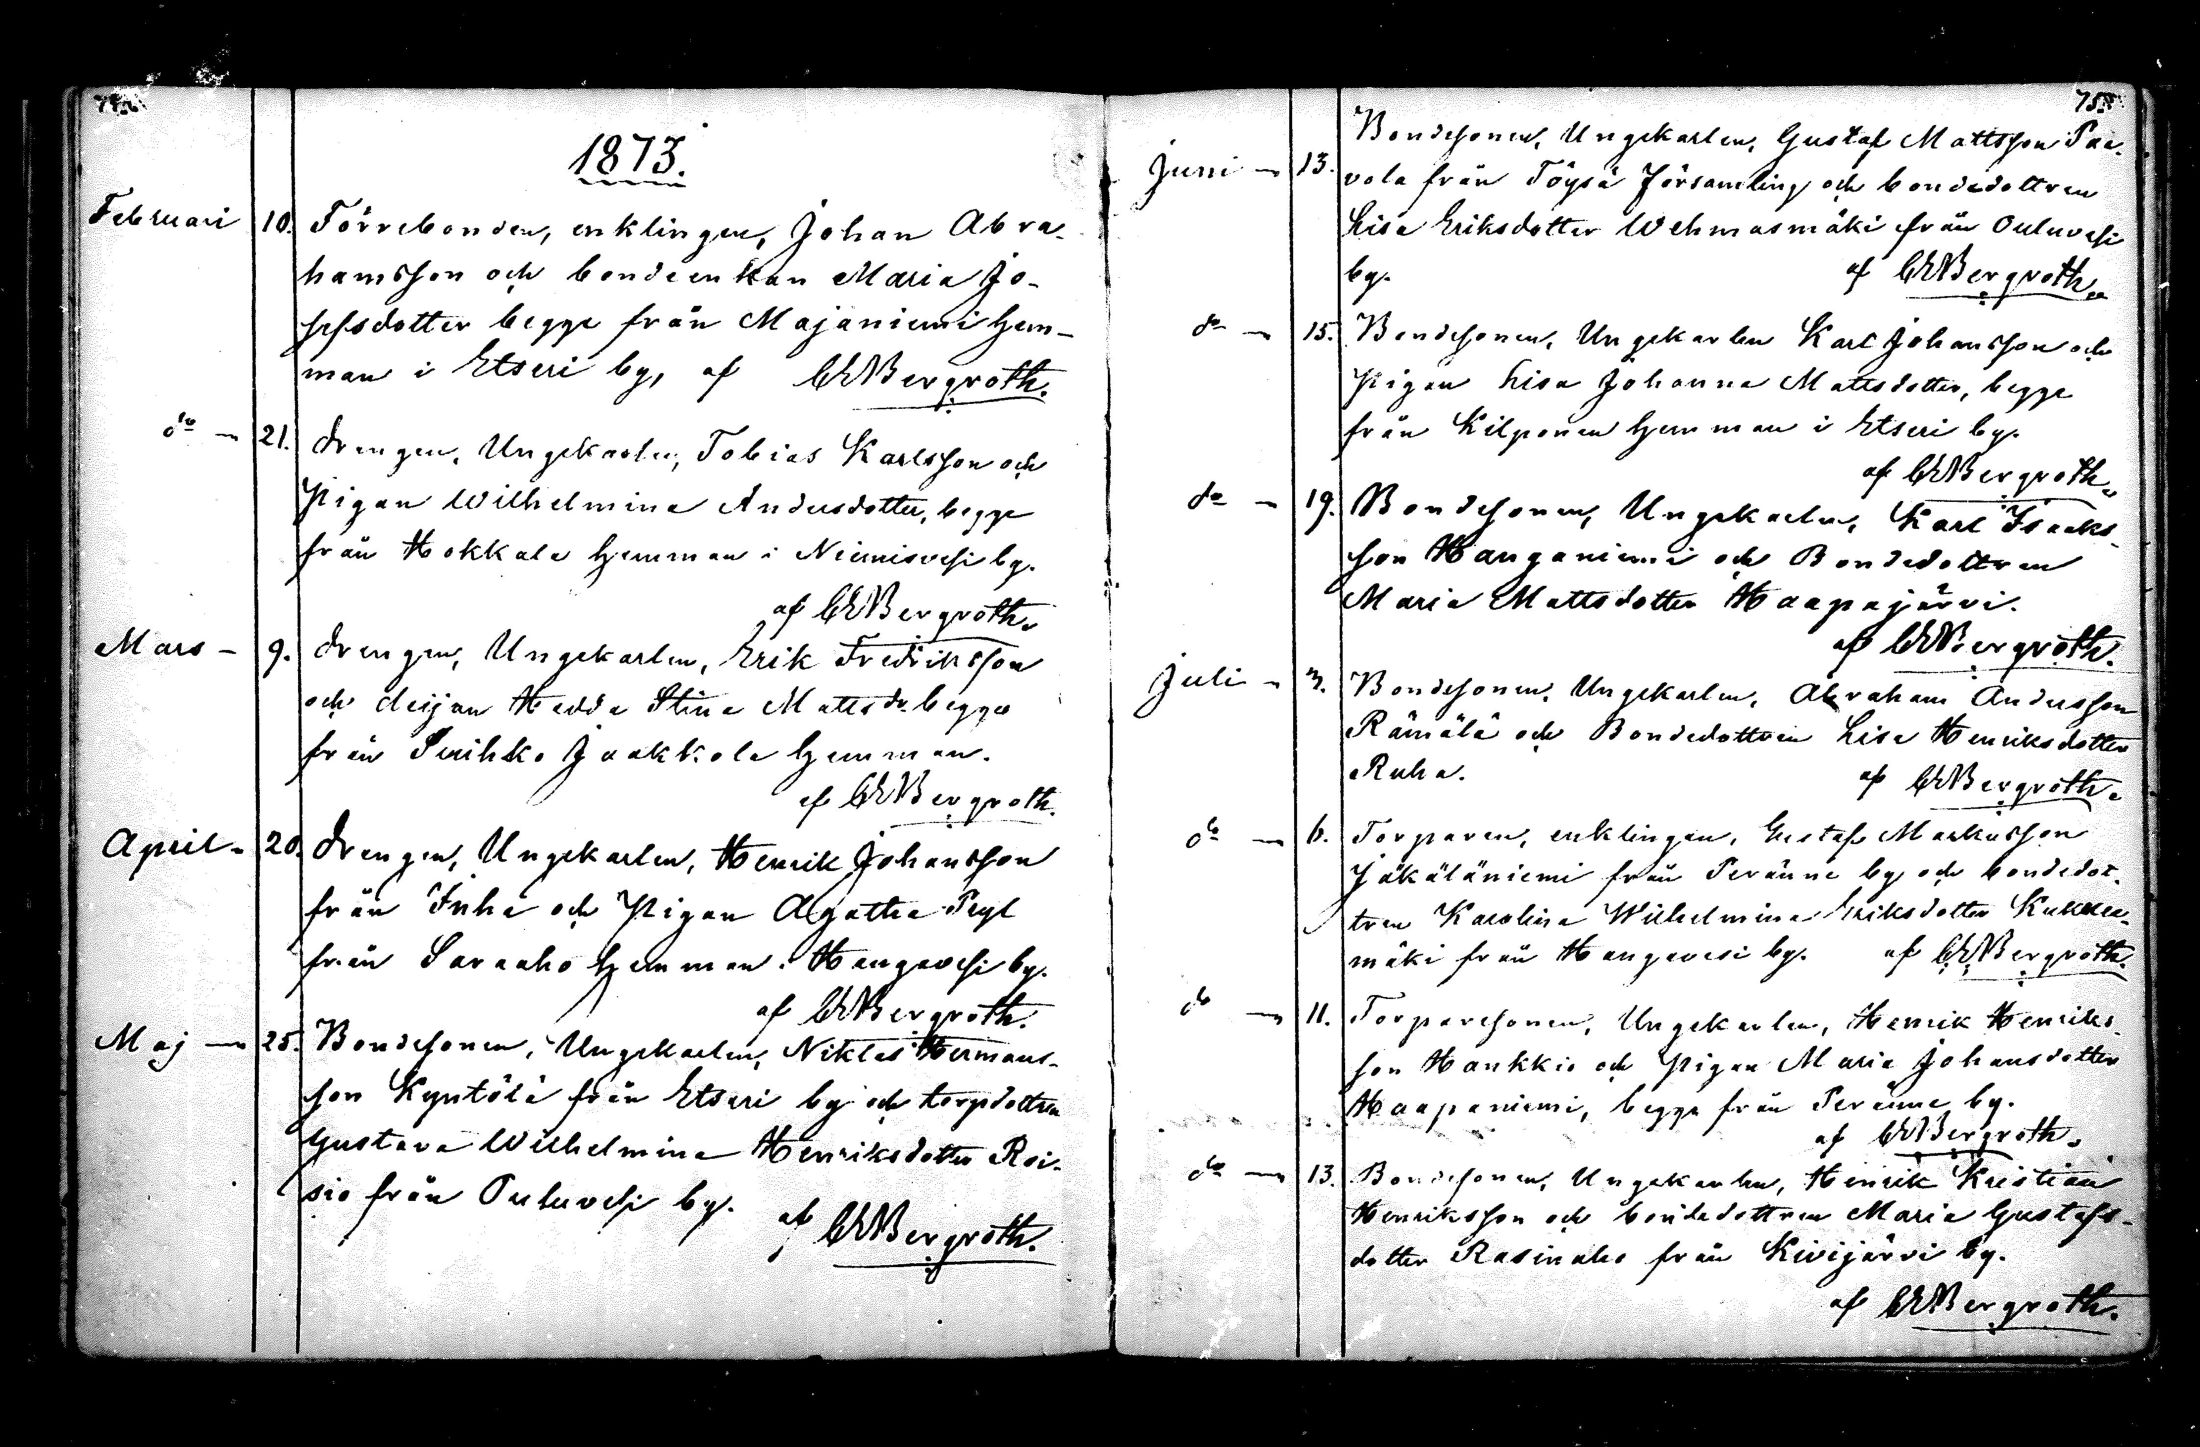 74.
1873.
Februari 10. Förrebonden, enklingen, Johan Abra-
hamsson och bondeenkan Maria Jo-
sefsdotter begge från Majaniemi hem-
man i Etseri by, af CEBergroth.
do — 21. Drengen, Ungekarlen, Tobias Karlsson och
Pigan Wilhelmina Andersdotter, begge
från Hokkala hemman i Niemisvesi by.
af CEBergroth.
Mars — 9. Drengen, Ungekarlen, Erik Fredriksson
och Hedda Stina Mattsdr begge
från Jaakkola hemman.
af CEBergroth.
April — 20. Drengen, Ungekarlen, Henrik Johansson
från Inha och Pigan Agatha Pryl
från Saraaho hemman i Hangavesi by.
af CEBergroth.
Maj — 25. Bondesonen, Ungekarlen, Niklas Hermans-
son Kyntölä från Etseri by och torpdottren
Gustava Wilhelmina Henriksdotter Roi-
sio från Ouluvesi by. af CEBergroth.
75.
Juni — 13. Bondesonen, Ungekarlen, Gustaf Mattsson Paa-
vola från Töysä Församling och bondedottren
Lisa Eriksdotter Wehmasmäki från Ouluvesi
by. af CEBergroth.
do — 15. Bondesonen, Ungekarlen Karl Johansson och
Pigan Lisa Johanna Mattsdotter, begge
från Kilponen hemman i Etseri by.
af CEBergroth.
do — 19. Bondesonen, Ungekarlen, Karl Isaaks-
son Hanganiemi och Bondedottren
Maria Mattsdotter Haapajärvi.
af CEBergroth.
Juli — 3. Bondesonen, Ungekarlen, Abraham Andersson
Rämälä och Bondedottren Lisa Henriksdotter
Ruha. af CEBergroth.
do — 6. Torparen, enklingen, Gustaf Markusson
Jäkäläniemi från Peränne by och bondedot-
tren Karolina Wilhelmina Eriksdotter
mäki från Hangavesi by. af CEBergroth.
do — 11. Torparesonen, Ungekarlen, Henrik Henriks-
son Hankkio och Pigan Maria Johansdotter
Haapaniemi, begge från Peränne by.
af CEBergroth.
do — 13. Bondesonen, Ungekarlen, Henrik Kristian
Henriksson och bondedottren Maria Gustafs-
dotter Rasinaho från Kivijärvi by.
af CEBergroth.